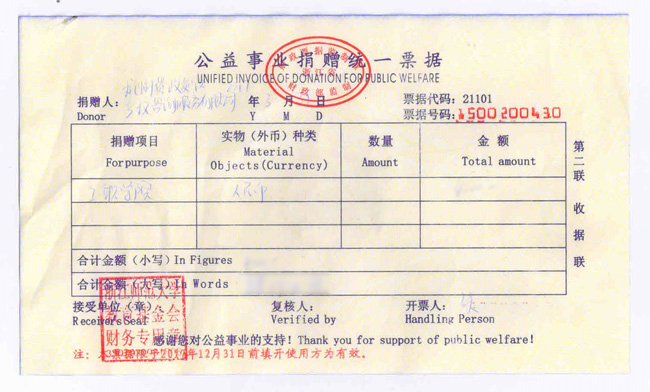 公益事业捐赠统一票据
UNIFIED INVOICE OF DONATION FOR PUBLIC WELFARE
捐赠人： 年 月 日 票据代码：21101
Donor Y M D 票据号码：1500200430
捐赠项目 实物（外币）种类 数量 金额
For purpose Material Amount Total amount
Objects (Currency)
人民币
合计金额（小写）In Figures
合计金额（大写）In Words
接受单位（章） 复核人： 开票人：
Receivers Seal Verified by Handling Person
感谢您对公益事业的支持！Thank you for support of public welfare!
12月31日前填开使用方为有效。
第二联 收据联
浙江师范大学
教育基金会
财务专用章
财政部监制